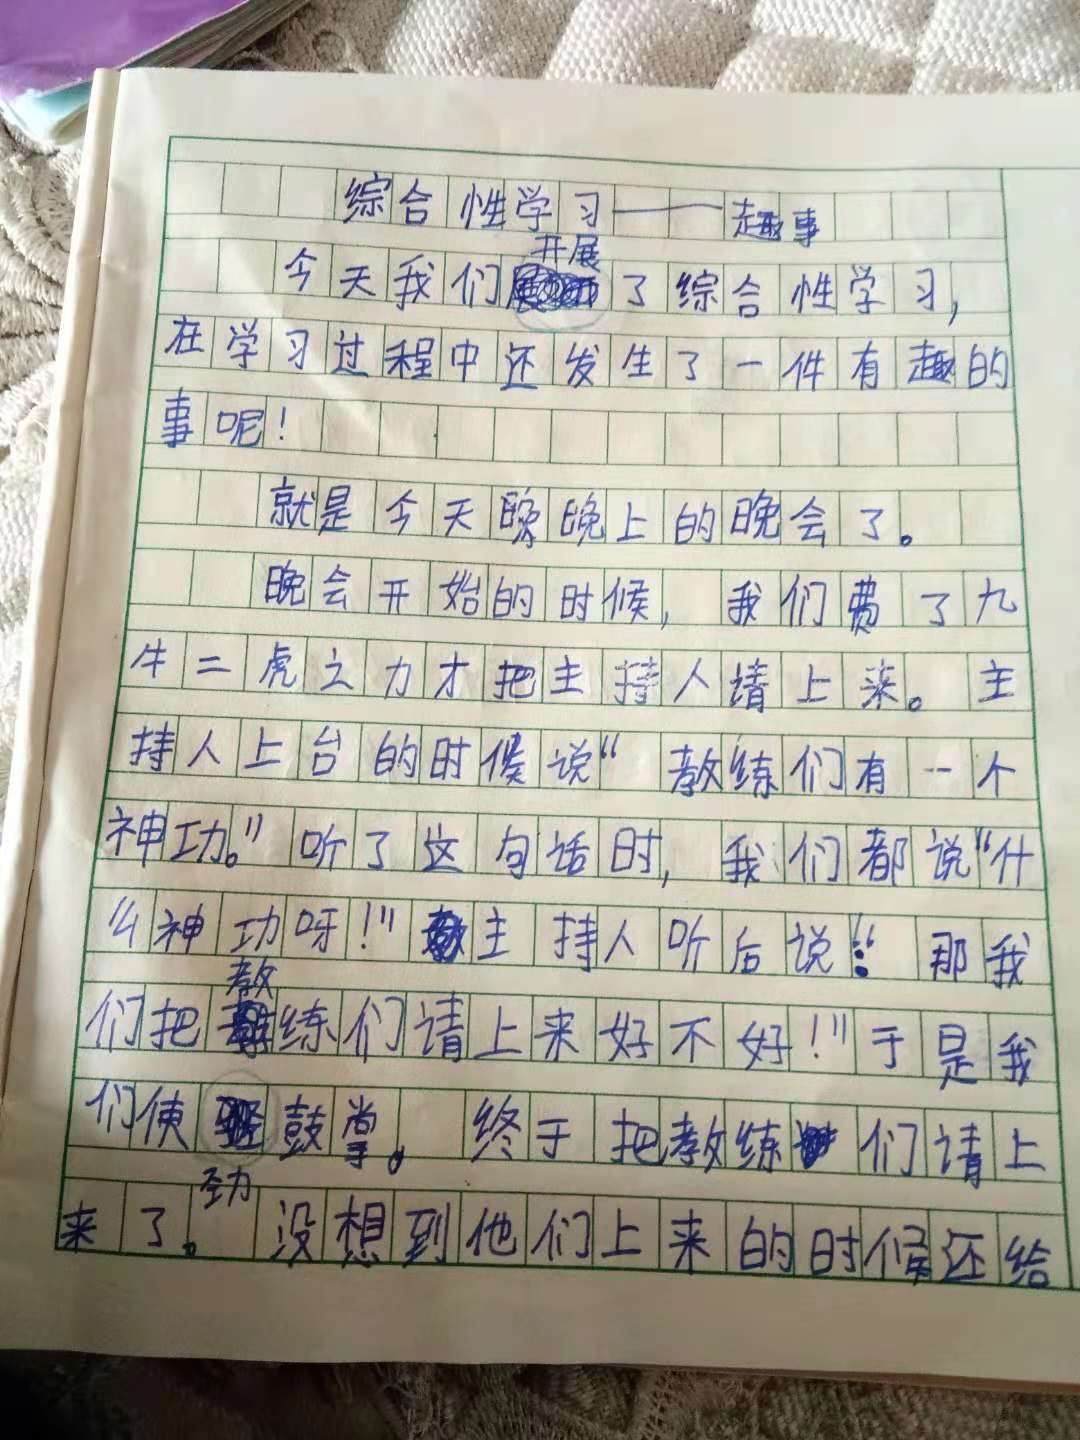 综合性学习——趣事
今天我们开展了综合性学习，
在学习过程中还发生了一件有趣的
事呢！
就是今天晚晚上的晚会了。
晚会开始的时候，我们费了九
牛二虎之力才把主持人请上来。主
持人上台的时候说“教练们有一个
神功。”听了这句话时，我们都说“什
么神功呀！”主持人听后说：“那我
们把教练们请上来好不好！”于是我
们使劲鼓掌。终于把教练们请上
来了。没想到他们上来的时候还给